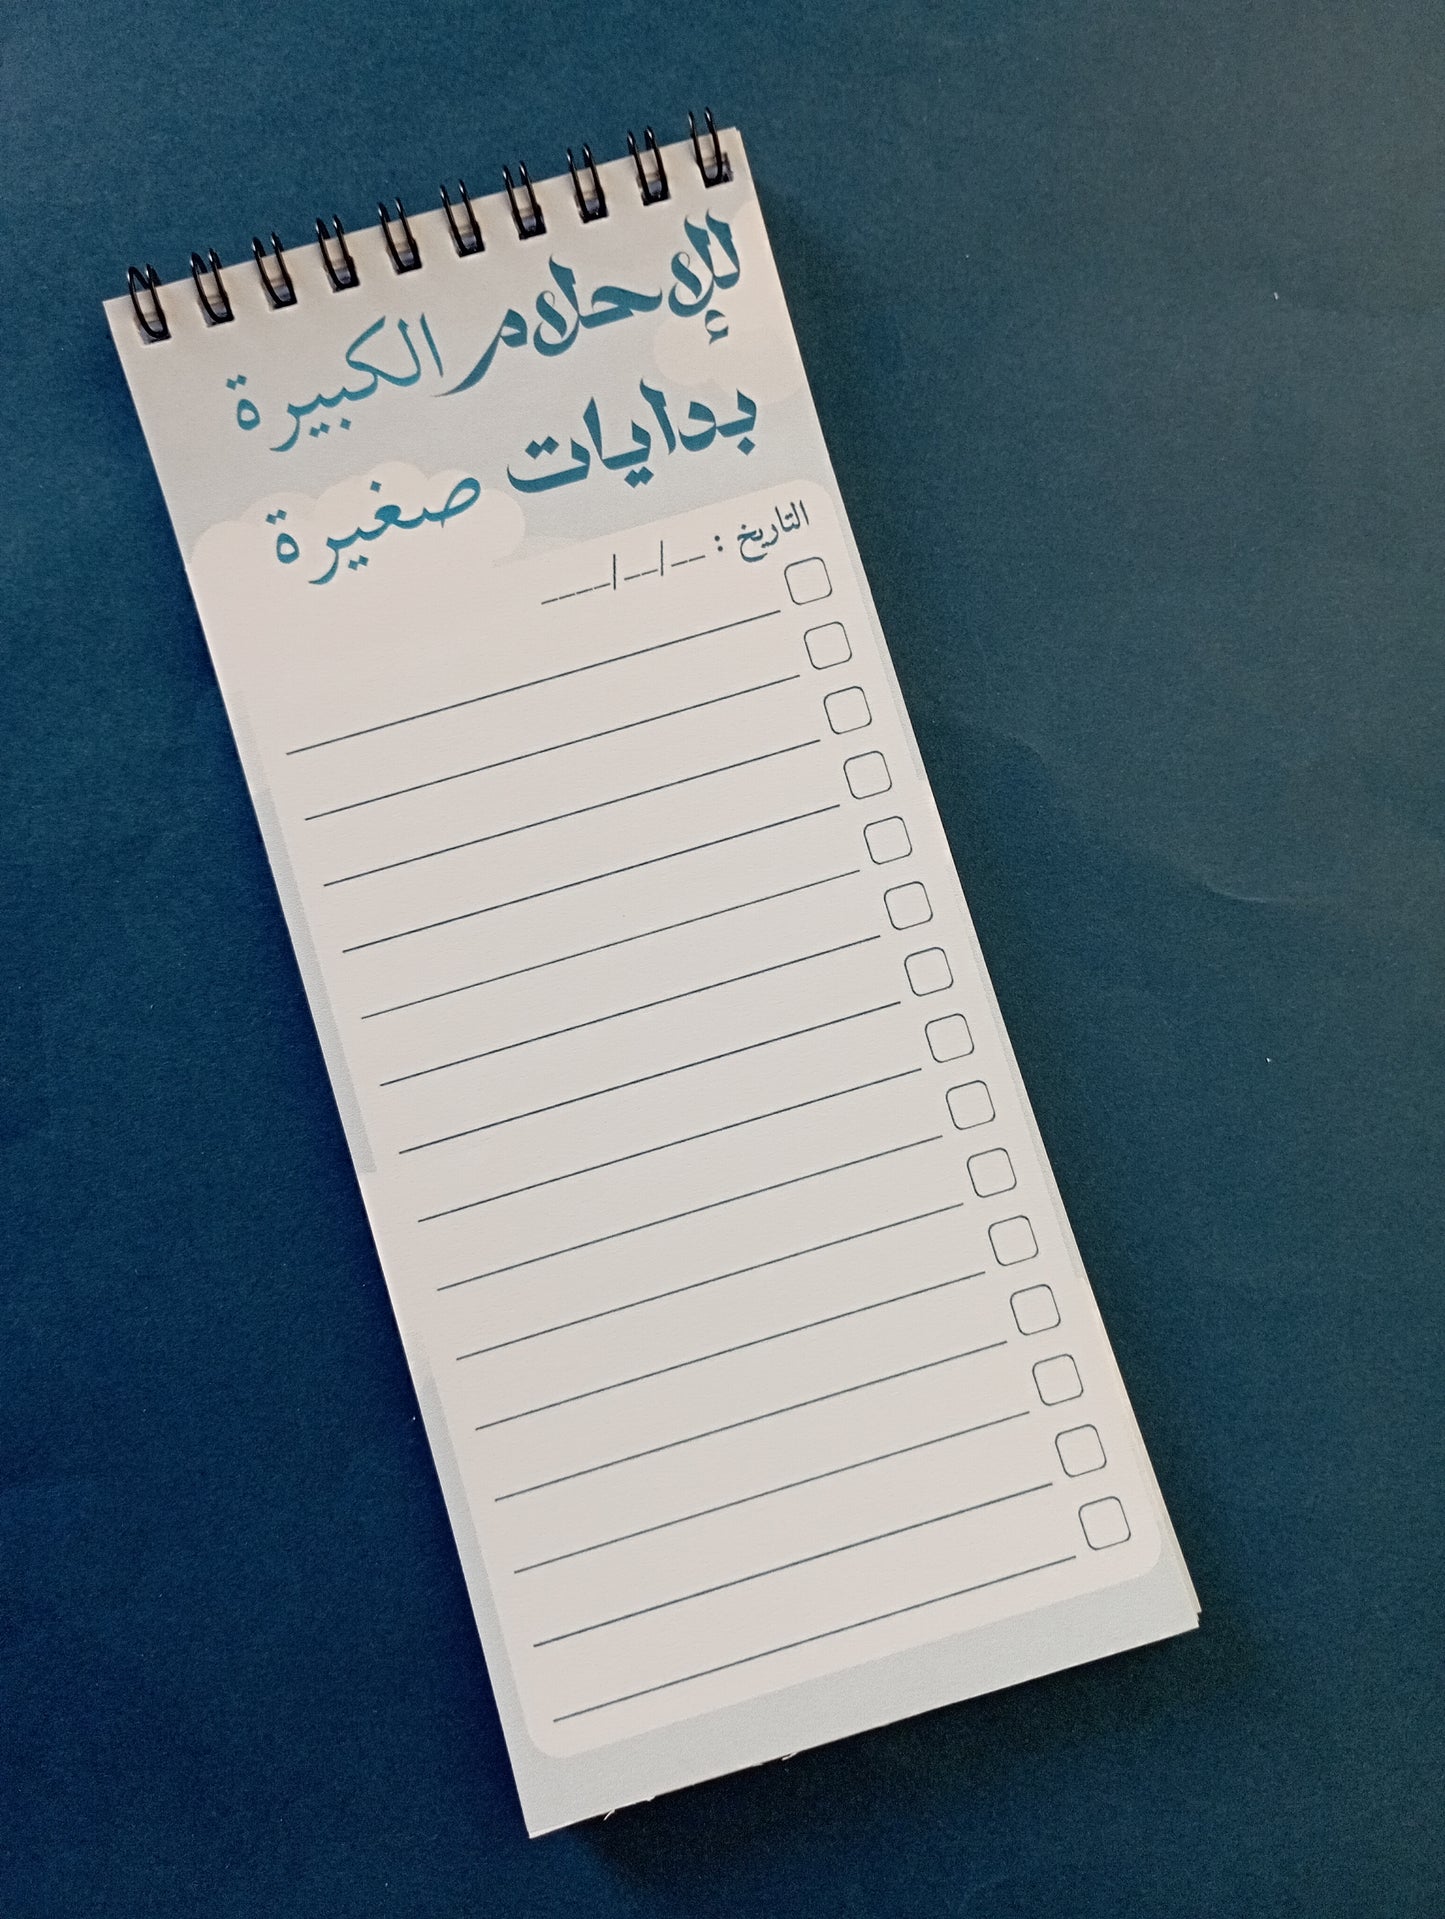 للإحلام الكبيرة
بدايات صغيرة
التاريخ : __/__/____